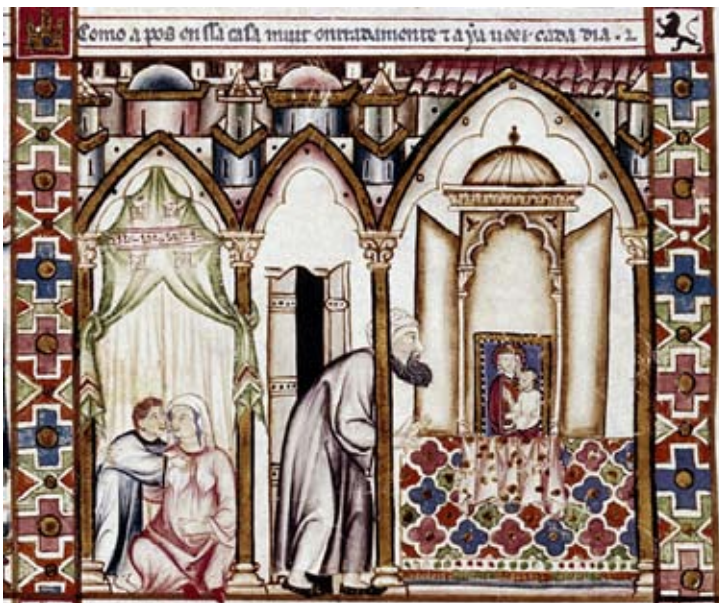 Como a pos en ssa casa muit onrradamente ⁊ a ya ueer cada dia .